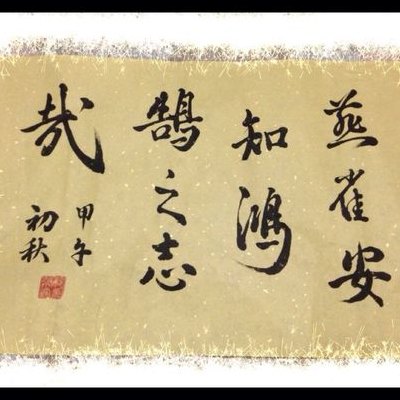 燕雀安
知鴻
鵠之志
哉
甲午
初秋